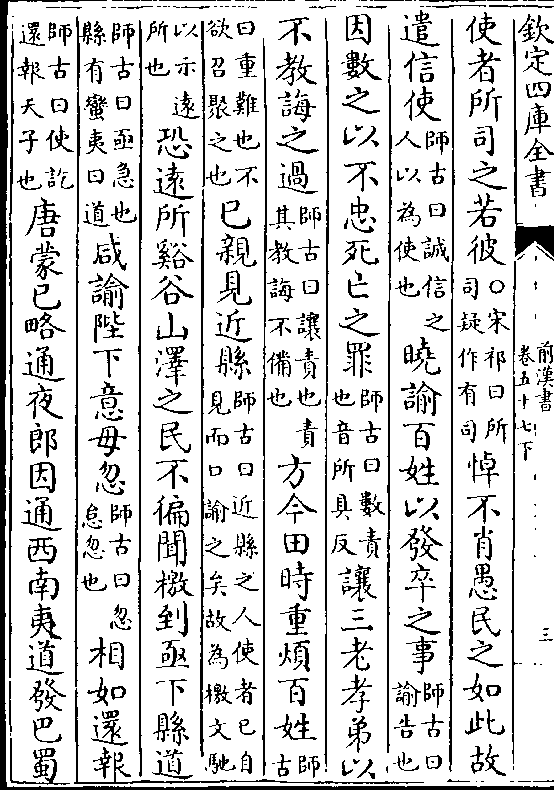 欽定四庫全書
前漢書
卷五十七下
三
使者所司之若彼○宋祁曰所司疑作有司悼不肖愚民之如此故
遣信使師古曰誠信之人以為使也曉諭百姓以發卒之事師古曰諭告也
因數之以不忠死亡之罪師古曰數責也音所具反讓三老孝弟以
不教誨之過師古曰讓責也責其教誨不備也方今田時重煩百姓師古
曰重難也不欲召聚之也已親見近縣師古曰近縣之人使者已自見而口諭之矣故為檄文馳
以示遠所也恐遠所谿谷山澤之民不徧聞檄到亟下縣道
師古曰亟急也縣有蠻夷曰道咸諭陛下意毋忽師古曰忽怠忽也相如還報
師古曰使訖還報天子也唐蒙已略通夜郎因通西南夷道發巴蜀